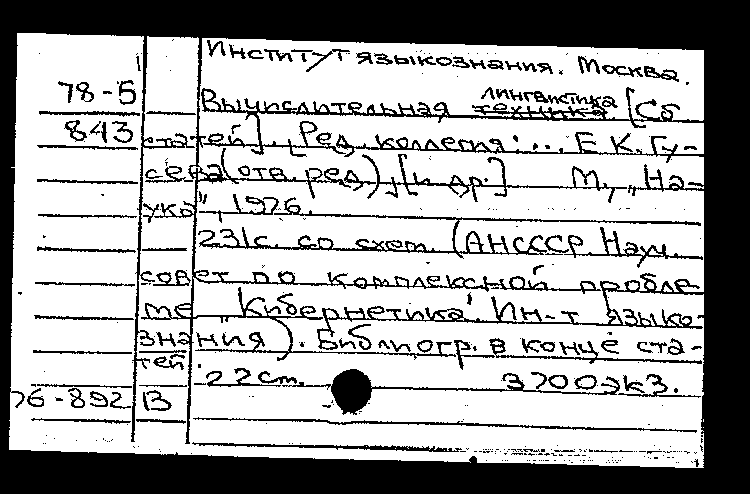 Институт языкознания. Москва.
78-5
лингвистика
Вычислительная техника [Сб
843 статей]. Ред. коллегия: ... Е.К. Гу-
сева (отв. ред), [и др.] М., „На-
ука", 1976.
231с. со схем. (АНСССР. Науч.
совет по комплексной пробле-
ме „Кибернетика". Ин-т языко-
знания). Библиогр. в конце ста-
тей.
22см. 3700экз.
76-892 В